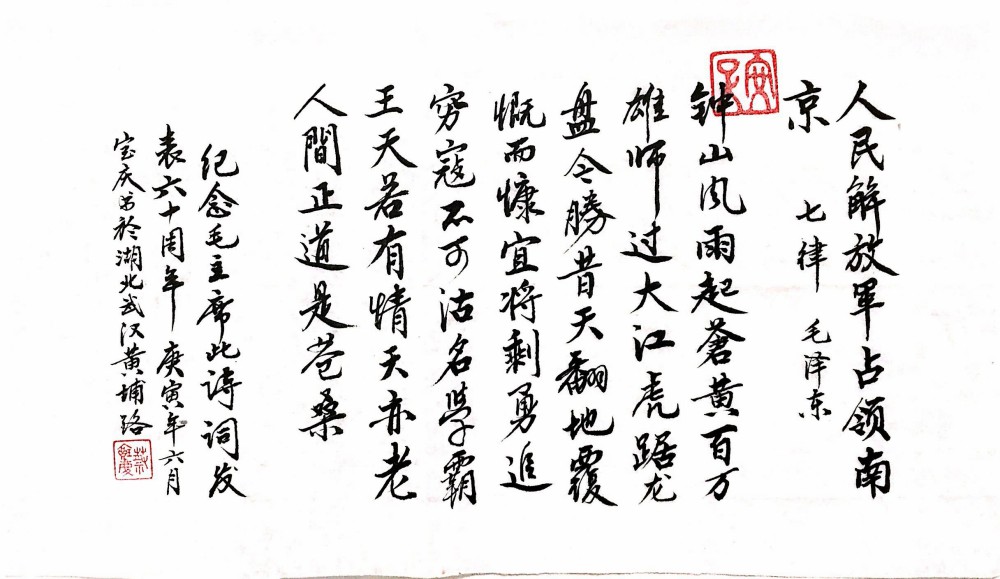 人民解放军占领南
京 七律 毛泽东
钟山风雨起蒼黄百万
雄师过大江虎踞龙
盘今勝昔天翻地覆
慨而慷宜将剩勇追
穷寇不可沽名学霸
王天若有情天亦老
人間正道是苍桑
纪念毛主席此诗词发
表六十周年 庚寅年六月
宝庆书於湖北武汉黄埔路